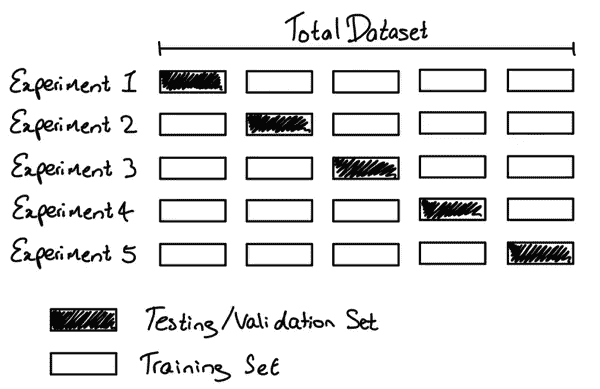 Total Dataset
Experiment 1
Experiment 2
Experiment 3
Experiment 4
Experiment 5
Testing/Validation Set
Training Set